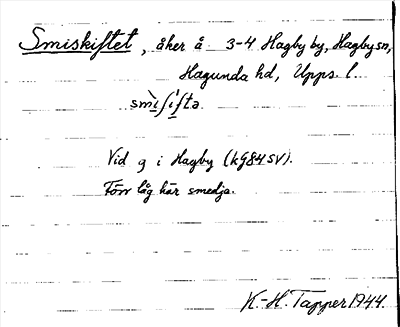 Smiskiftet, åker å 3-4 Hagby by, Hagby sn,
Hagunda hd, Upps. l.
smìʃífta
Vid g i Hagby (kG84SV).
Förr låg här smedja.
K.-H. Tapper 1944.